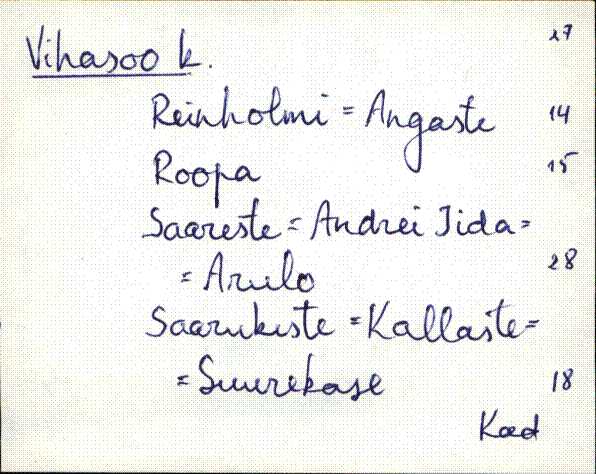 27
Vihasoo k.
Reinholmi = Angaste 14
Roopa 15
Saareste = Andrei Iida =
= Arulo 28
Saarukiste = Kallaste =
= Suurekase 18
Kad